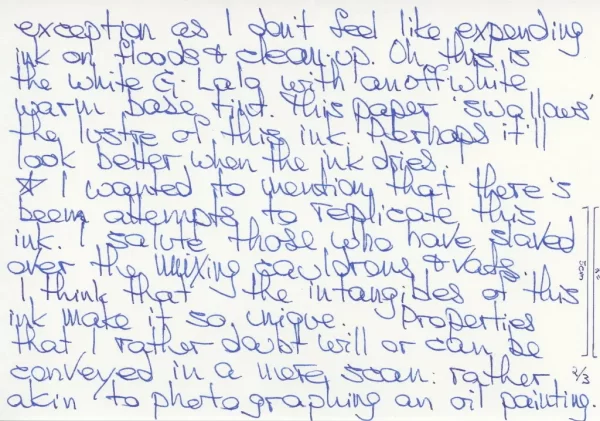 exception as I don't feel like expending
ink on floods & clean-up. Oh, this is
the white G. Lalo with an off white
warm base tint. This paper 'swallows'
the lustre of this ink. Perhaps it'll
look better when the ink dries.
* I wanted to mention that there's
been attempts to replicate this
ink. I salute those who have slaved
over the mixing cauldrons & vats.
I think that the intangibles of this
ink make it so unique. Properties
that I rather doubt will or can be
conveyed in a mere scan: rather
akin to photographing an oil painting.
7cm
2/3